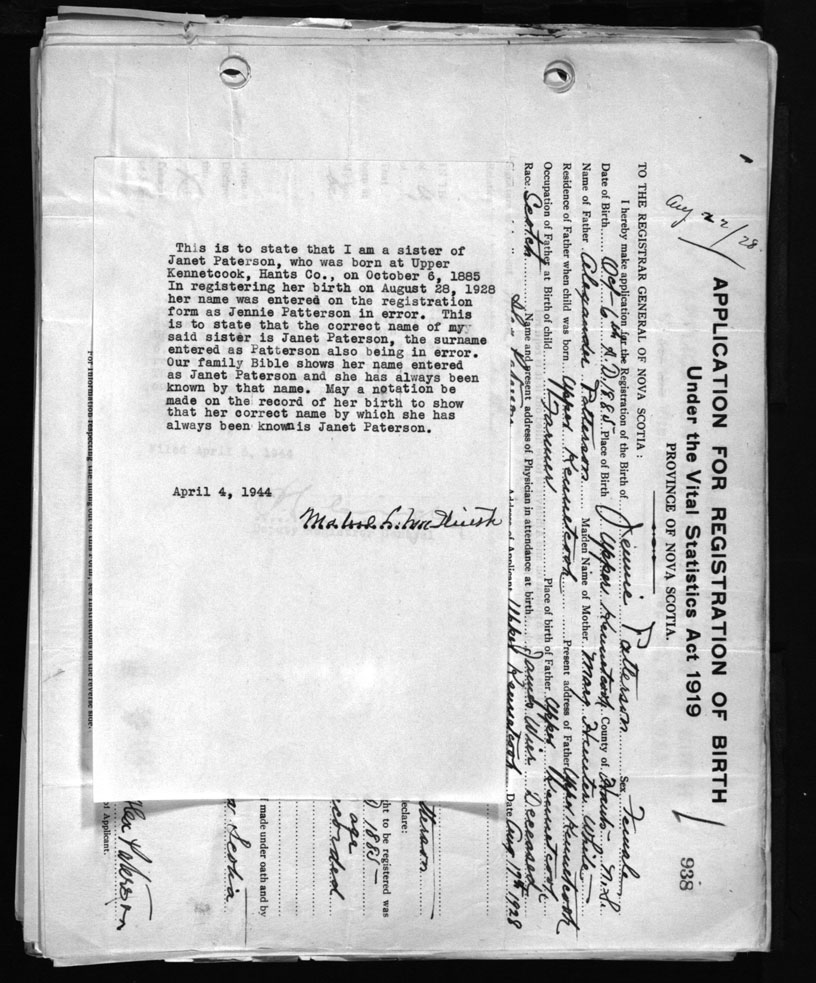 This is to state that I am a sister of
Janet Paterson, who was born at Upper
Kennetcook, Hants Co., on October 6, 1885
In registering her birth on August 28, 1928
her name was entered on the registration
form as Jennie Patterson in error. This
is to state that the correct name of my
said sister is Janet Paterson, the surname
entered as Patterson also being in error.
Our family Bible shows her name entered
as Janet Paterson and she has always been
known by that name. May a notation be
made on the record of her birth to show
that her correct name by which she has
always been known is Janet Paterson.
April 4, 1944
Aug 22/28
APPLICATION FOR REGISTRATION OF BIRTH
938
Under the Vital Statistics Act 1919
PROVINCE OF NOVA SCOTIA.
TO THE REGISTRAR GENERAL OF NOVA SCOTIA:
I hereby make application for the Registration of the Birth of Jennie Patterson Sex Female
Date of Birth Oct 6th A.D. 1885 Place of Birth Upper Kennetcook County of Hants N.S.
Name of Father Alexander Patterson Maiden Name of Mother Mary Hunter White
Residence of Father when child was born Upper Kennetcook Present address of Father Upper Kennetcook
Occupation of Father at Birth of child Farmer Place of birth of Father Upper Kennetcook
Race Scotch Name and present address of Physician in attendance at birth James Weir Deceased
Address of Applicant Upper Kennetcook Date Aug 17th 1928
tterson
eclare:
ht to be registered was
1885
age
made under oath and by
Scotia
Alex Paterson
of Applicant.
For information respecting the filling out of this Form, see instructions on the reverse side.